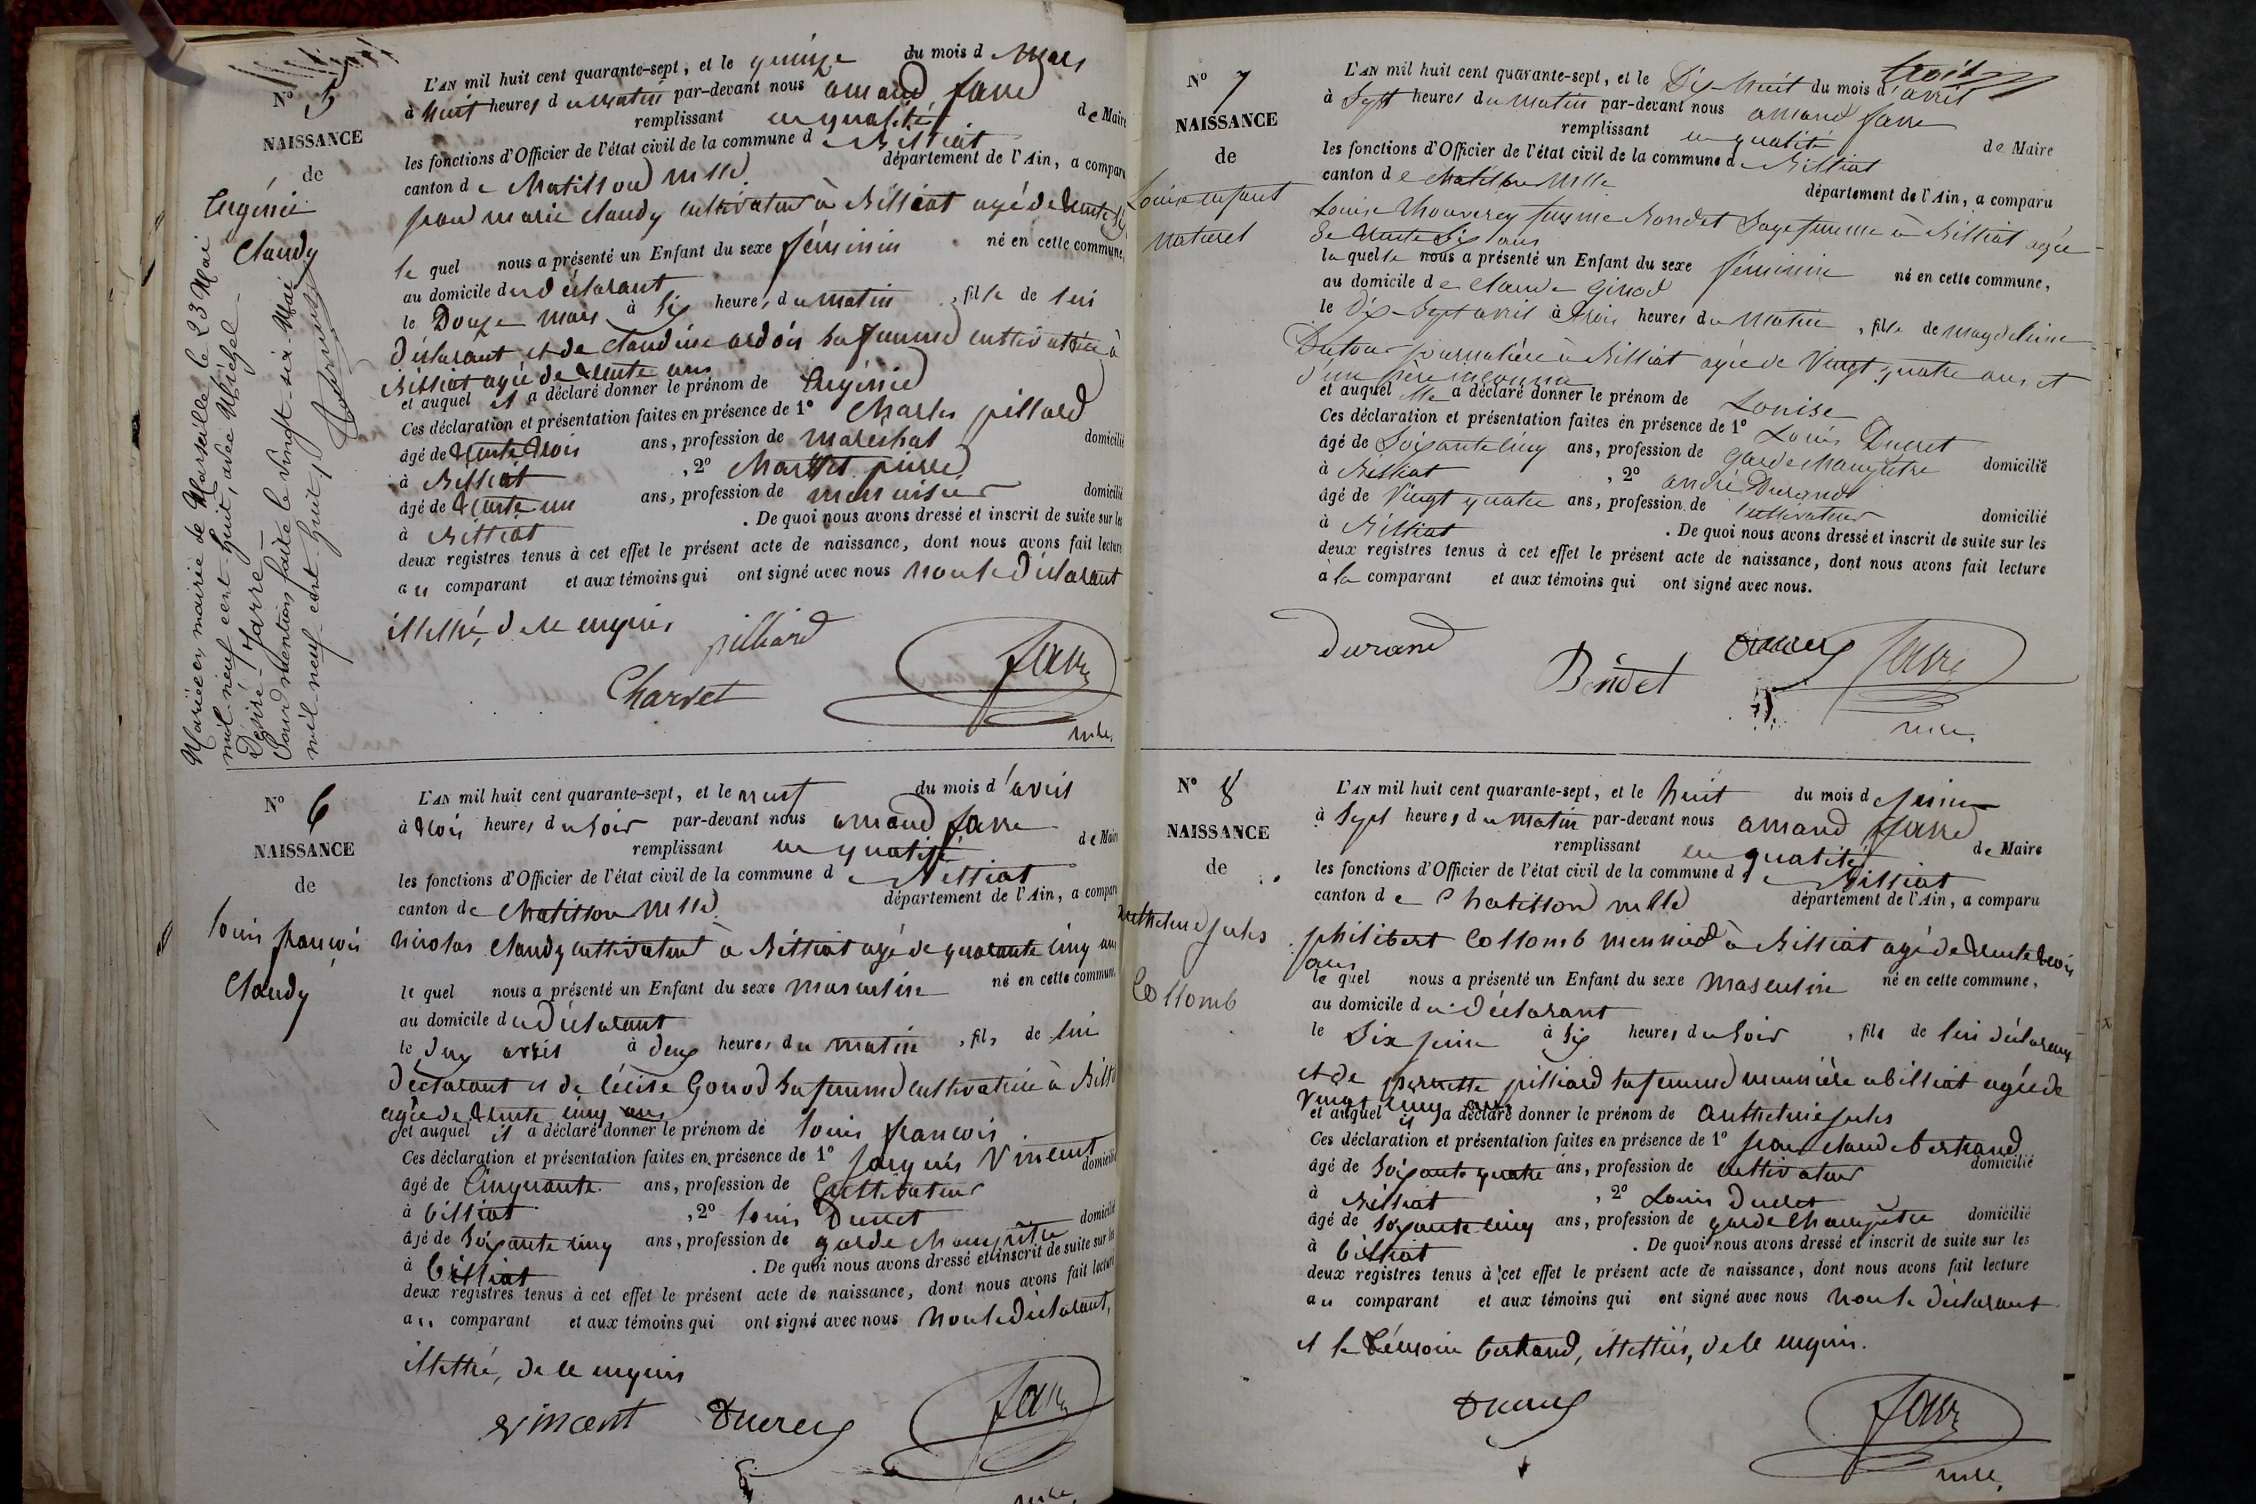 N° 5
NAISSANCE
de
Eugénie
Claudy
Mariée en mairie de Marseille le 23 Mai
mil neuf cent huit, avec Michel
Désiré Jarre
Pour mention faite le vingt-six Mai
mil neuf cent huit
L'AN mil huit cent quarante-sept, et le quinze du mois d Mars
à huit heures du matin par-devant nous amand favre
remplissant en qualité de Maire
les fonctions d'Officier de l'état civil de la commune de Billiat
canton de Chatillon département de l'Ain, a comparu
jean marie claudy cultivateur à Billiat agé de trente six
le quel nous a présenté un Enfant du sexe féminin né en cette commune,
au domicile du déclarant
le Douze mars à six heures du matin, fille de lui
déclarant et de claudine ardoin sa femme cultivatrice à
Billiat agée de trente ans
et auquel il a déclaré donner le prénom de Eugénie
Ces déclaration et présentation faites en présence de 1° Charles pilliard
âgé de trente trois ans, profession de maréchal domicilié
à Billiat, 2° Charvet pierre
âgé de trente un ans, profession de menuisier domicilié
à Billiat. De quoi nous avons dressé et inscrit de suite sur les
deux registres tenus à cet effet le présent acte de naissance, dont nous avons fait lecture
au comparant et aux témoins qui ont signé avec nous non le déclarant
illettré, de ce enquis
pilliard
Charvet
favre
mre.
N° 6
NAISSANCE
de
Louis françois
Claudy
L'AN mil huit cent quarante-sept, et le neuf du mois d'avril
à trois heures du soir par-devant nous amand favre
remplissant en qualité de Maire
les fonctions d'Officier de l'état civil de la commune de Billiat
canton de Chatillon département de l'Ain, a comparu
nicolas claudy cultivateur à Billiat agé de quarante cinq ans
le quel nous a présenté un Enfant du sexe masculin né en cette commune,
au domicile du déclarant
le deux avril à deux heures du matin, fils de lui
déclarant et de Cécile Gonod sa femme cultivatrice à Billiat
agée de trente cinq ans
et auquel il a déclaré donner le prénom de Louis françois
Ces déclaration et présentation faites en présence de 1° jacques Vincent
âgé de Cinquante ans, profession de Cultivateur domicilié
à billiat, 2° Louis Ducret
âgé de soixante cinq ans, profession de garde champêtre domicilié
à billiat. De quoi nous avons dressé et inscrit de suite sur les
deux registres tenus à cet effet le présent acte de naissance, dont nous avons fait lecture
au comparant et aux témoins qui ont signé avec nous non le déclarant,
illettré, de ce enquis
vincent Ducret favre
mre.
N° 7
NAISSANCE
de
Louise enfant
naturel
L'AN mil huit cent quarante-sept, et le Dix-huit du mois d'avril
à Sept heures du matin par-devant nous amand favre
remplissant en qualité de Maire
les fonctions d'Officier de l'état civil de la commune de Billiat
canton de Chatillon département de l'Ain, a comparu
Louise femme Bondet Sage femme à Billiat agée
de trente six ans
la quelle nous a présenté un Enfant du sexe féminin né en cette commune,
au domicile de Claude Ginod
le Dix-Sept avril à trois heures du matin, fille de magdeleine
Dutour journalière à Billiat agée de Vingt quatre ans et
d'un père inconnu
et auquel elle a déclaré donner le prénom de Louise
Ces déclaration et présentation faites en présence de 1° Louis Ducret
âgé de Soixante cinq ans, profession de Garde champêtre domicilié
à Billiat, 2° andré Durand
âgé de Vingt quatre ans, profession de cultivateur domicilié
à Billiat. De quoi nous avons dressé et inscrit de suite sur les
deux registres tenus à cet effet le présent acte de naissance, dont nous avons fait lecture
à la comparant et aux témoins qui ont signé avec nous.
Durand
Bondet
Ducret favre
mre.
N° 8
NAISSANCE
de
anthelme jules
Collomb
L'AN mil huit cent quarante-sept, et le huit du mois de juin
à Sept heures du matin par-devant nous amand favre
remplissant en qualité de Maire
les fonctions d'Officier de l'état civil de la commune de Billiat
canton de Chatillon département de l'Ain, a comparu
philibert Collomb meunier à Billiat agé de trente trois
ans
le quel nous a présenté un Enfant du sexe masculin né en cette commune,
au domicile du déclarant
le Six juin à six heures du soir, fils de lui déclarant
et de pernette pilliard sa femme meunière a billiat agée de
Vingt cinq ans
et auquel il a déclaré donner le prénom de anthelme jules
Ces déclaration et présentation faites en présence de 1° jean claude bertrand
âgé de soixante quatre ans, profession de cultivateur domicilié
à Billiat, 2° Louis Ducret
âgé de soixante cinq ans, profession de garde champêtre domicilié
à billiat. De quoi nous avons dressé et inscrit de suite sur les
deux registres tenus à cet effet le présent acte de naissance, dont nous avons fait lecture
au comparant et aux témoins qui ont signé avec nous non le déclarant
et le témoin bertrand, illettrés, de ce enquis.
Ducret
favre
mre.